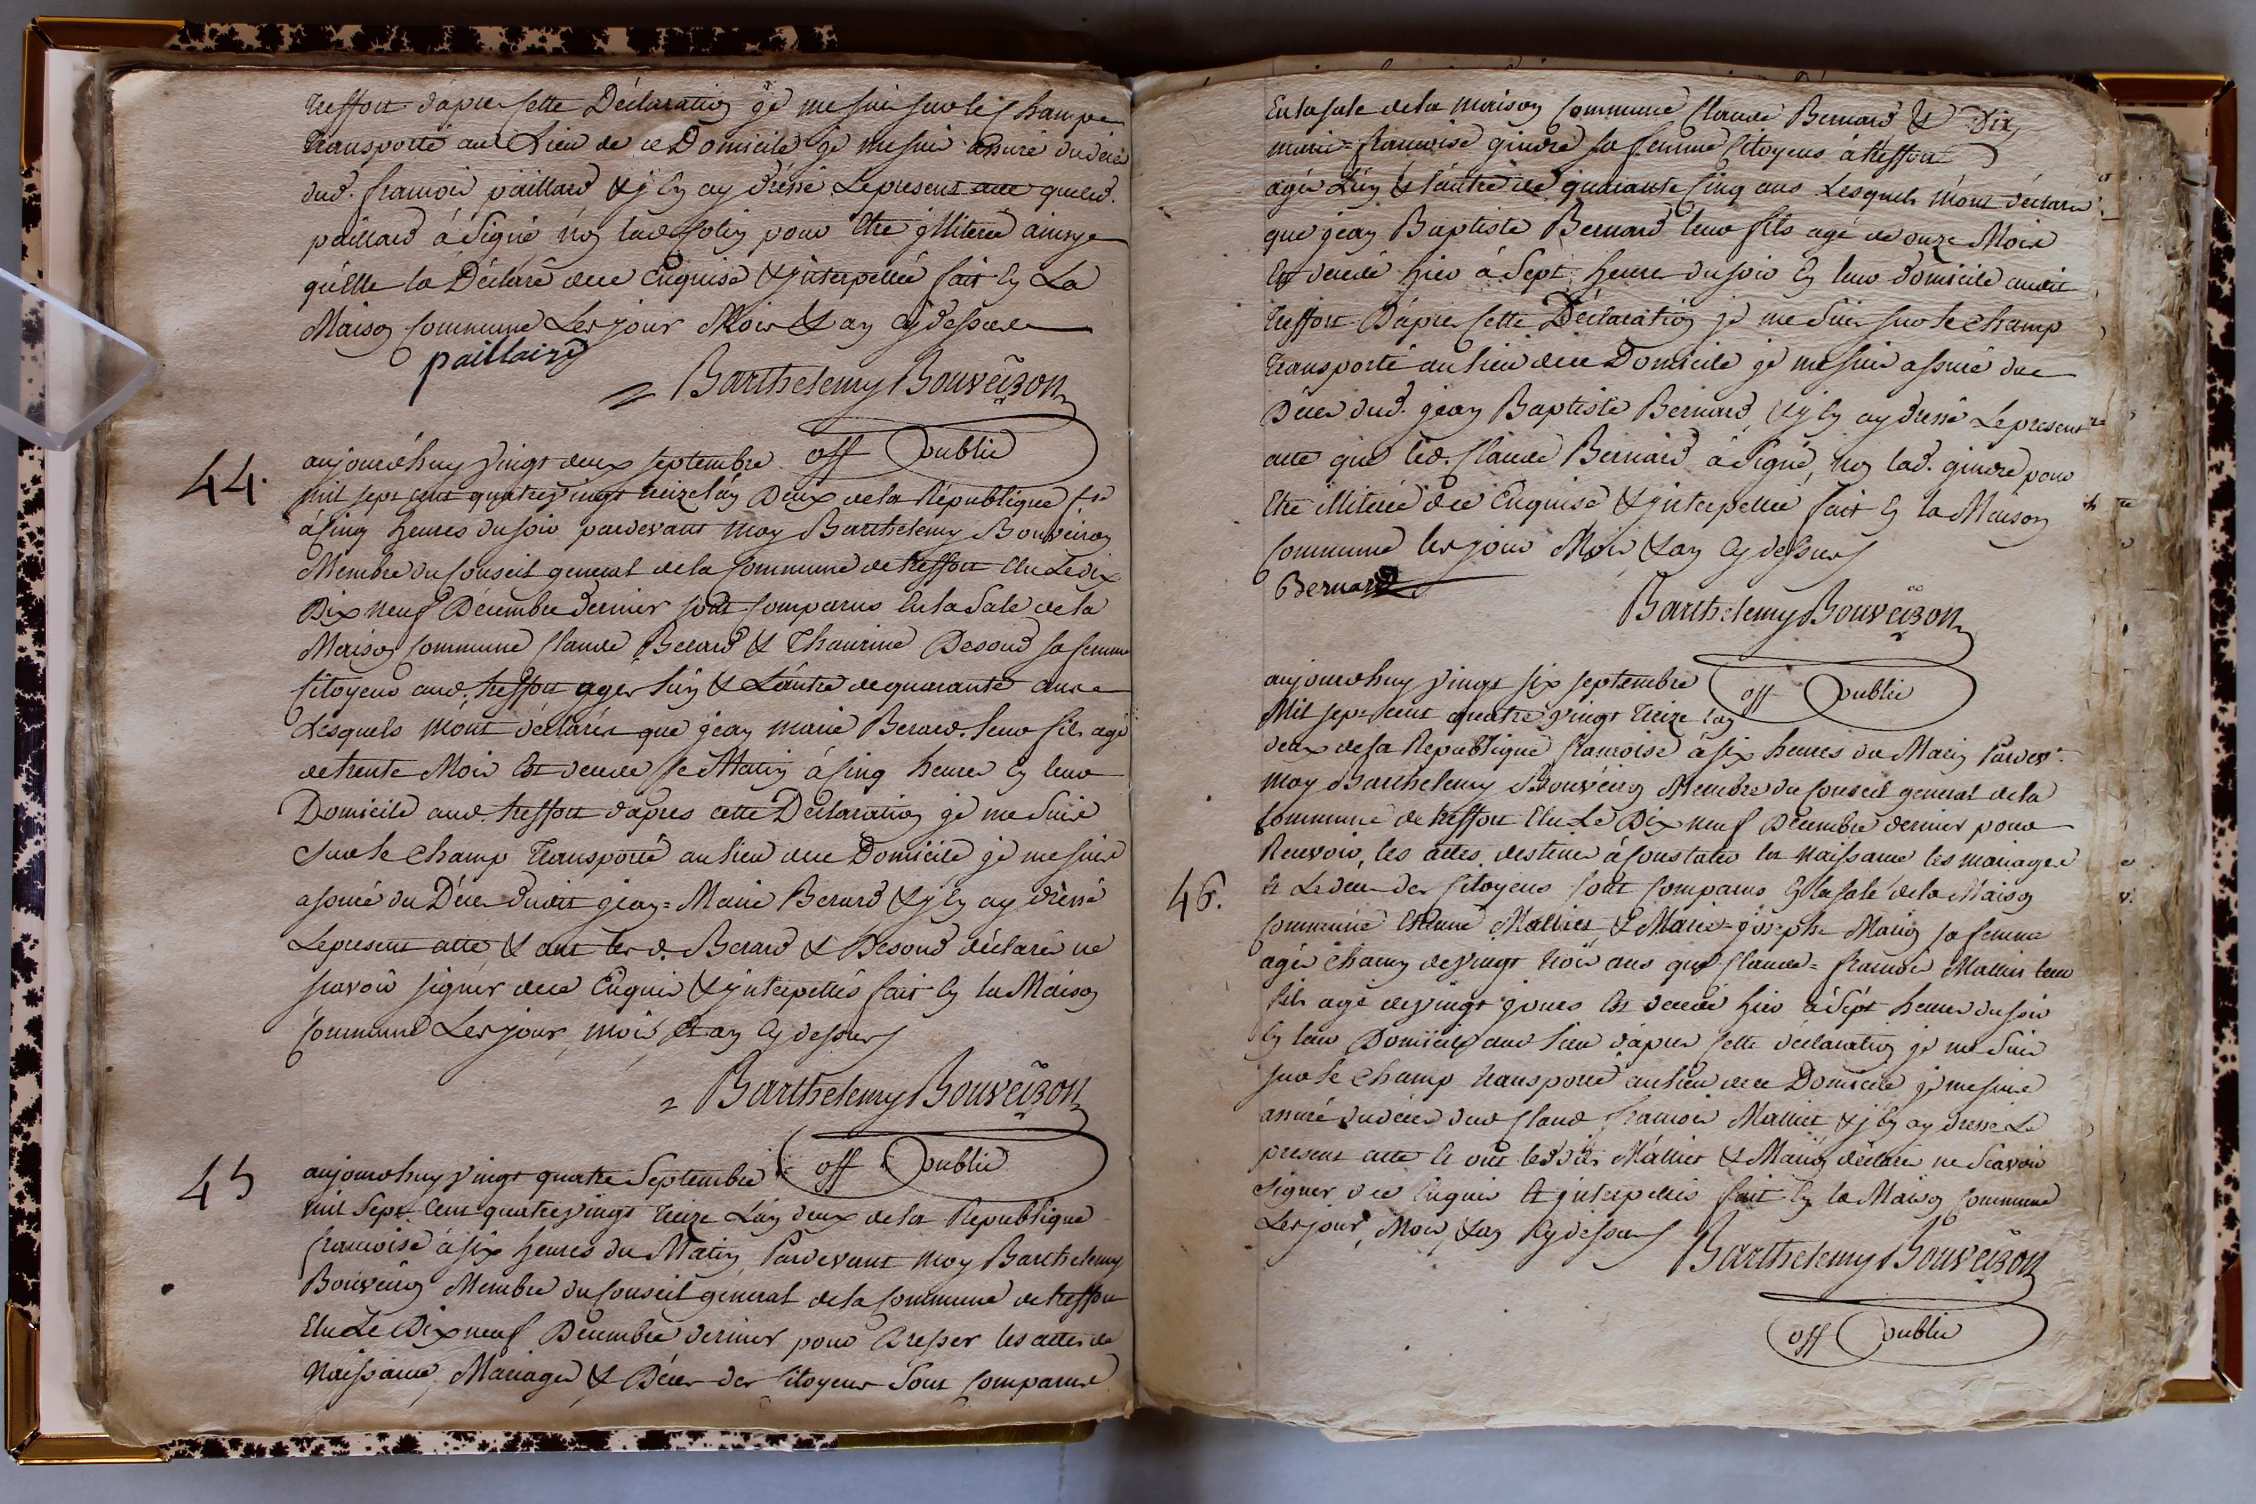 treffort d'apres cette Déclaration je me suis sur le champ
transporté au Lieu de ce Domicile je me suis assuré du décès
dud. francois paillard & j'en ay dréssé Le present acte que led.
paillard á signé non lad. Colin pour être jlliterée ainsy
qu'elle la Déclaré de ce Enquise & jnterpellée fait En La
Maison Commune Les jour Mois & an cy dessus
paillaird
Barthelemy Bouveiron
off public
44.
aujourdhuy vingt deux septembre
mil sept cent quatrevingt treize l'an Deux de la République fse
à Cinq heures du soir pardevant moy Barthelemy Bouveiron
Membre du Conseil general de la Commune de treffort Elu Le dix
Dix neuf Décembre dernier sont Comparus En la Sale de la
Maison Commune Claude Berard & Thaurine Desoud sa femme
Citoyens aud. treffort agés L'un & L'autre de quarante ans
Lesquels m'ont déclarés que jean marie Berard leur fils agé
de trente Mois Est decedé ce Matin á Cinq heures En leur
Domicile aud. treffort d'apres cette Déclaration je me suis
sur le champ transporté au lieu de ce Domicile je me suis
assuré du Décès dudit jean=Marie Berard & j'en ay dréssé
Le present acte & ont les d. Berard & Desoud déclaré ne
scavoir signer de ce Enquis & jnterpellés fait En la Maison
Commune Les jour, mois, et an cy dessus
Barthelemy Bouveiron
off public
45
aujourdhuy vingt quatre Septembre
mil Sept Cent quatrevingt treize L'an deux de la République
francoise á six heures du Matin, Pardevant moy Barthelemy
Bouveiron Membre du Conseil general de la Commune de treffort
Elu Le Dix neuf Décembre dernier pour Dresser les actes de
Naissance, Mariages & Décès des Citoyens Sont Comparus
En la sale de la maison Commune Claude Bernard &
marie=francoise gindre sa femme Citoyens á treffort
agés L'un & l'autre de quarante Cinq ans Lesquels m'ont déclaré
que jean Baptiste Bernard leur fils agé de onze Mois
Est decedé hier á Sept heures du soir En leur domicile audit
treffort D'apres cette Déclaration je me suis sur le champ
transporté au lieu de ce Domicile je me suis assuré du
Décès dud. jean Baptiste Bernard, & j'en ay dressé Le present
acte que led. Claude Bernard á signé, non lad. gindre pour
Etre illiterée de ce Enquise & jnterpellée fait En la Maison
Commune les jour Mois & an cy dessus
Bernard
Barthelemy Bouveiron
off public
aujourdhuy vingt six septembre
Mil sept cent quatre vingt treize l'an
deux de la République francoise á six heures du Matin Pardevt
moy Barthelemy Bouveiron Membre du Conseil general de la
Commune de treffort Elu Le Dix neuf Décembre dernier pour
Recevoir les actes destinés á Constater les naissance les mariages
46.
et Le décès des Citoyens sont Comparus En la sale de la Maison
Commune Mallict & Marie=josephe Marion sa femme
agés chacun de vingt trois ans que Claude=francois Mallict leur
fils agé de vingt jours Est decedé hier á Sept heures du soir
En leur Domicile aud. lieu d'apres cette déclaration je me suis
sur le champ transporté au lieu de ce Domicile je me suis
assuré du décès dud Claud francois Mallict & j'en ay dresse Le
present acte et ont lesdits Mallict & Marion déclaré ne scavoir
signer de ce Enquis et jnterpellés fait En la Maison Commune
Les jour, Mois & an cy dessus
Barthelemy Bouveiron
off public